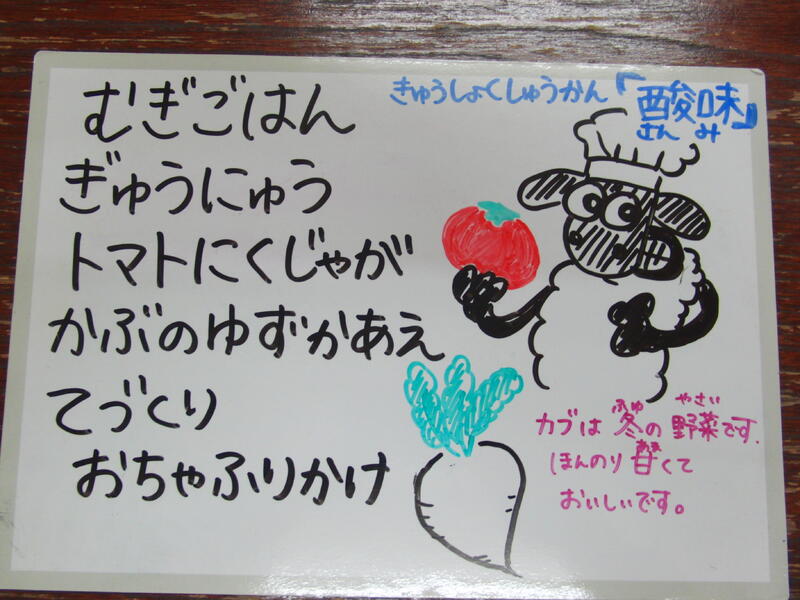 きゅうしょくしゅうかん「酸味」
さんみ
むぎごはん
ぎゅうにゅう
トマトにくじゃが
かぶのゆずかあえ
てづくり
おちゃふりかけ
ふゆ やさい
カブは 冬の 野菜です.
あま
ほんのり 甘くて
おいしいです。